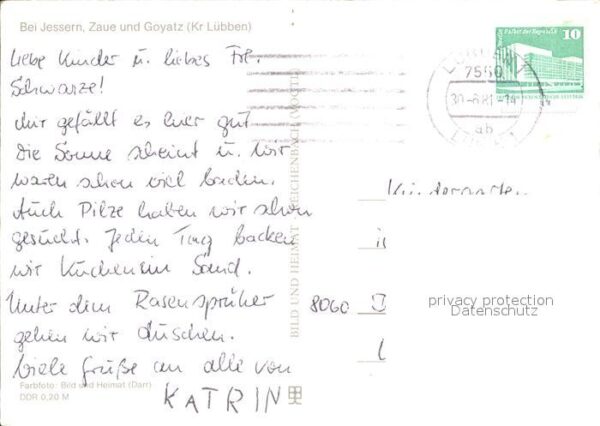 Bei Jessern, Zaue und Goyatz (Kr Lübben)
Liebe Kinder u. liebes Frl.
Schwarze!
Mir gefällt es hier gut
Die Sonne scheint u. wir
waren schon viel baden.
Auch Pilze haben wir schon
gesucht. Jeden Tag backen
wir Kuchen im Sand.
Unter dem Rasensprüher
gehen wir duschen.
Viele Grüße an alle von
KATRIN
Farbfoto: Bild und Heimat (Darr)
DDR 0,20 M
BILD UND HEIMAT REICHENBACH (VOGTL)
Palast der Republik
10
7550
ab
Kindergarten
8060
privacy protection
Datenschutz